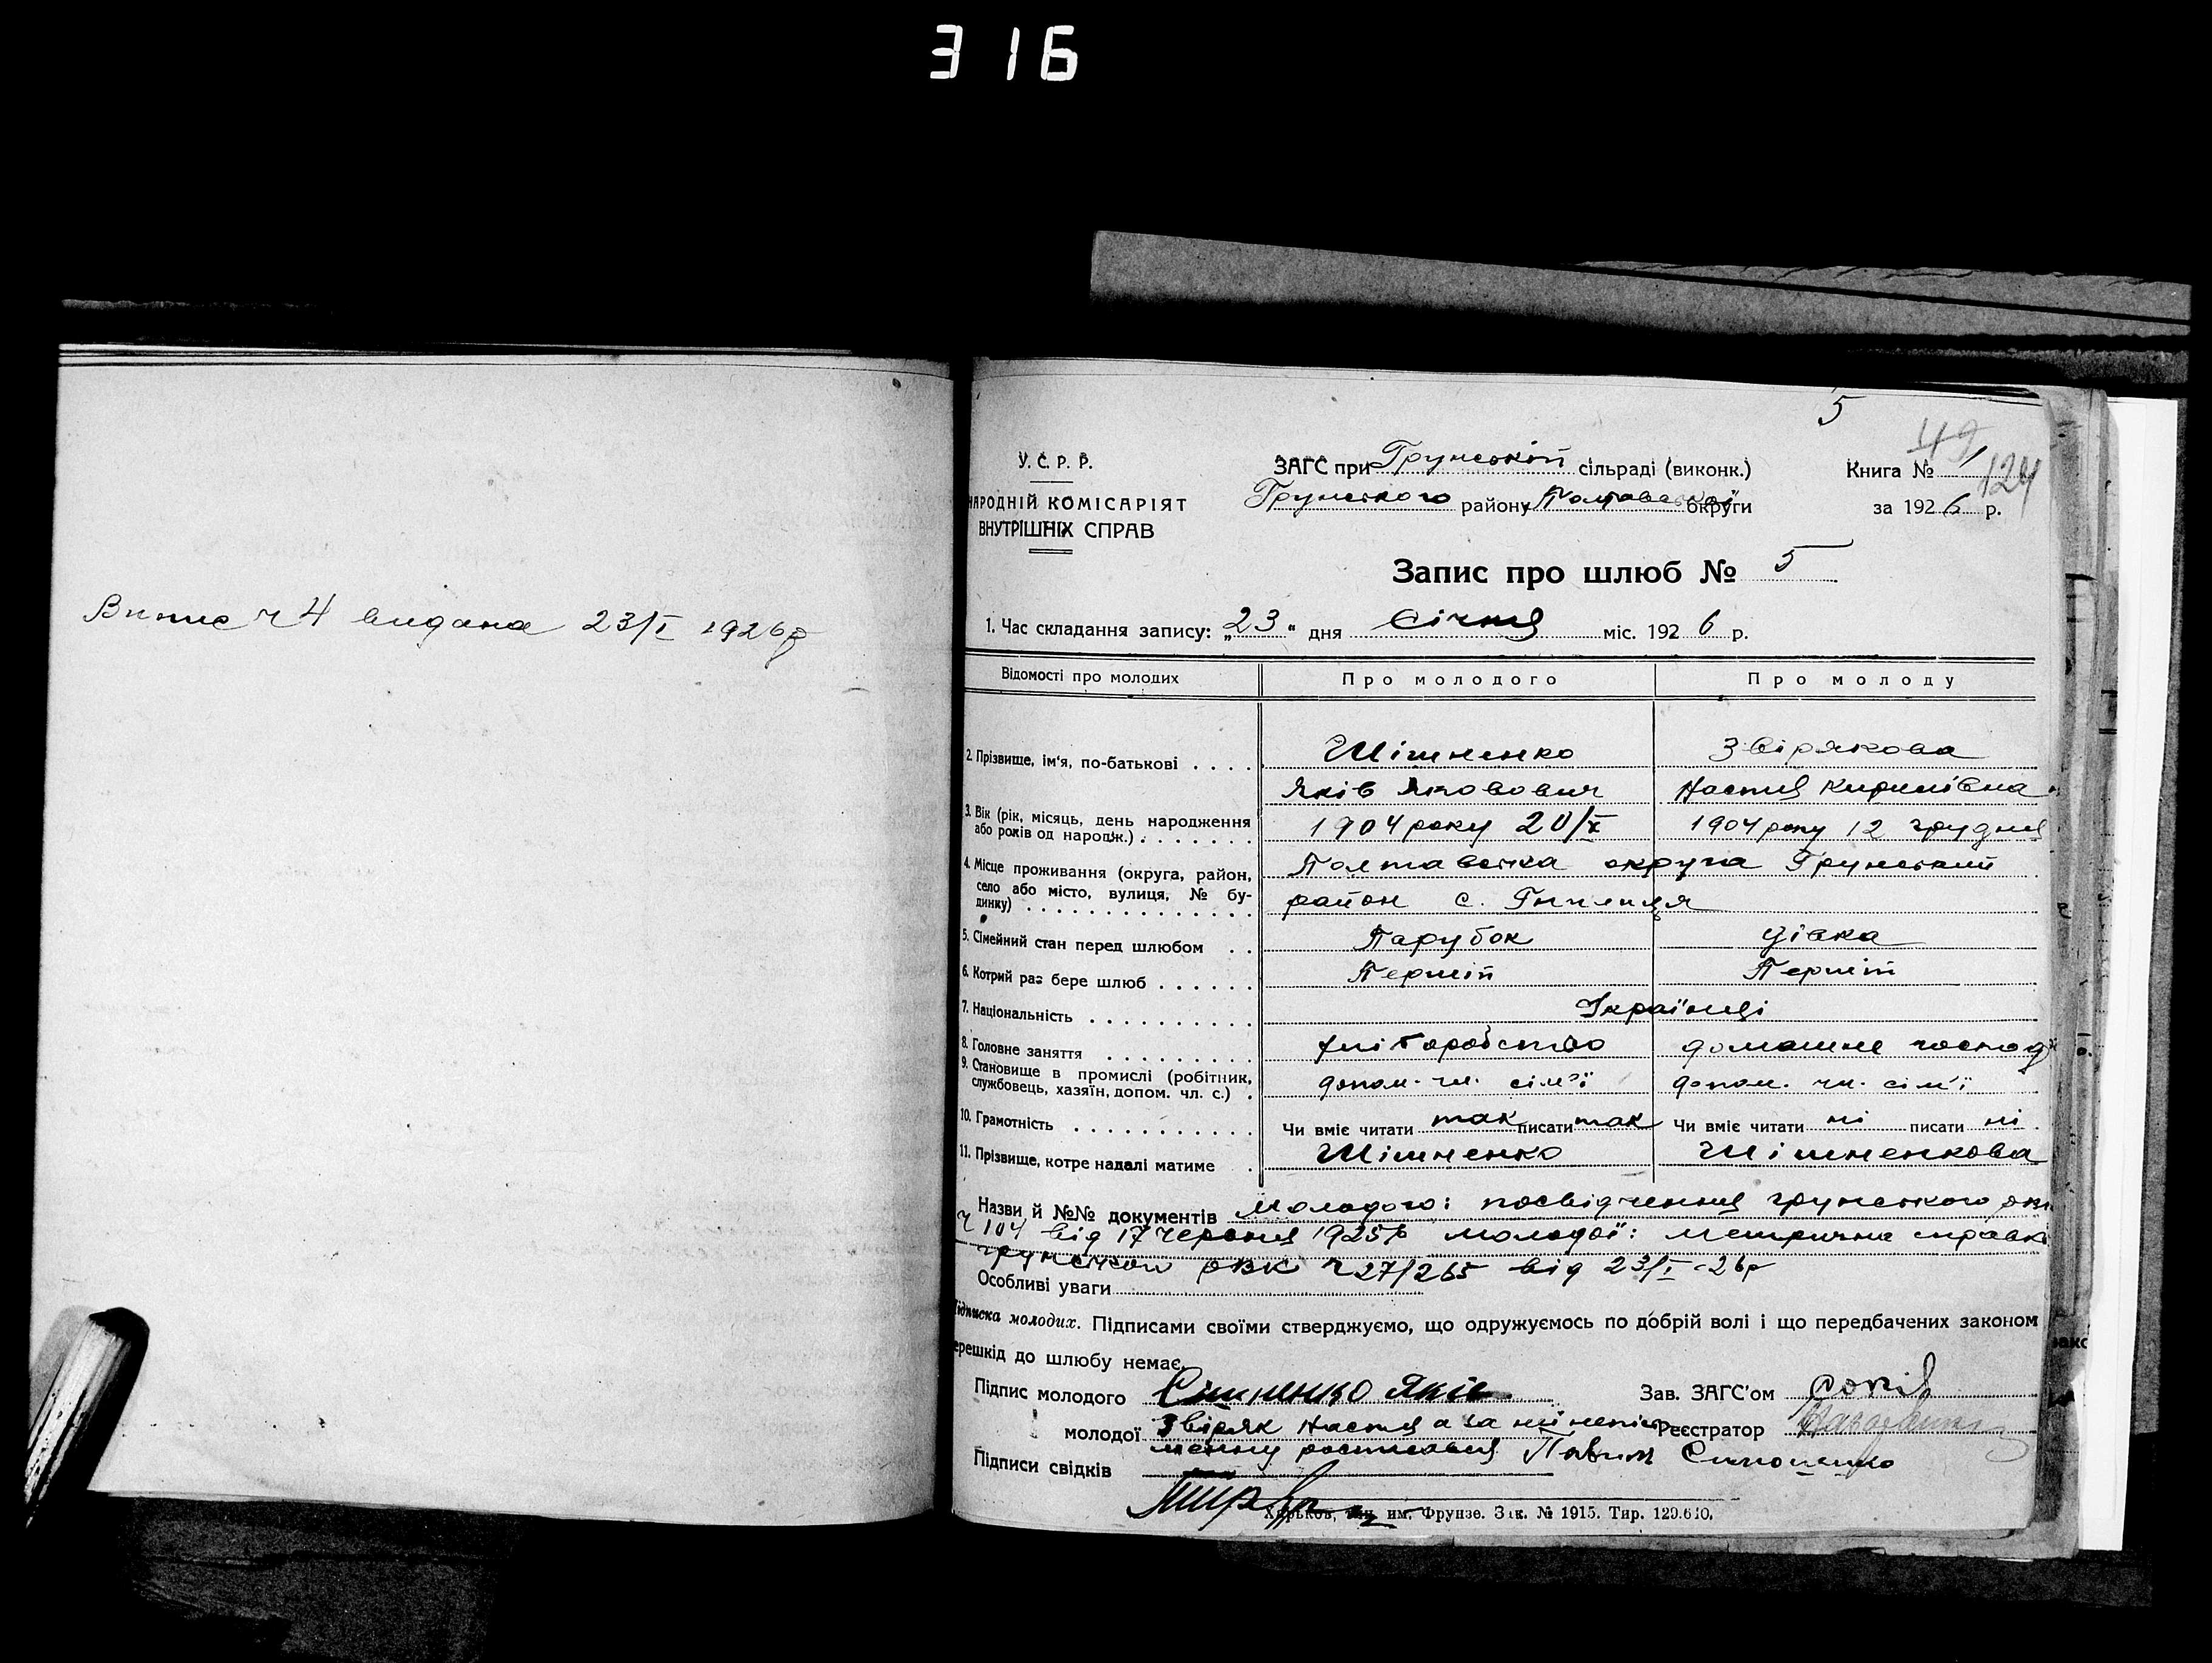 316
Випис ч 4 видана 23/I 1926р
5
49
124
У. С. Р. Р.
НАРОДНІЙ КОМІСАРІЯТ
ВНУТРІШНІХ СПРАВ
ЗАГС при Грунській сільраді (виконк.)
Грунського району Полтавської округи
Книга № 1
за 1926 р.
Запис про шлюб № 5
1. Час складання запису: „23" дня Січня міс. 1926 р.
Відомості про молодих Про молодого Про молоду
2. Прізвище, ім'я, по-батькові . . . . Шішненко Звірякова
Яків Якович Настя Кирилівна
3. Вік (рік, місяць, день народження або років од народж.) . . . . . . . 1904 року 20/X 1904 року 12 грудня
4. Місце проживання (округа, район, село або місто, вулиця, № будинку) . . . . Полтавська округа Грунський
район с.
5. Сімейний стан перед шлюбом . . Парубок Дівка
6. Котрий раз бере шлюб . . . . . . Перший Перший
7. Національність . . . . . . . . . . Українці
8. Головне заняття . . . . . . . . . хліборобство домашне господ
9. Становище в промислі (робітник, службовець, хазяїн, допом. чл. с.) . допом. чл. сім'ї допом. чл. сім'ї
10. Грамотність . . . . . . . . . . . Чи вміє читати так писати так Чи вміє читати ні писати ні
11. Прізвище, котре надалі матиме . Шішненко Шішненкова
Назви й №№ документів Молодого: посвідчення грунського
ч 104 від 17 червня 1925р молодої: метрична справка
грунской РВК ч 27/265 від 23/I-26р
Особливі уваги
Підписка молодих. Підписами своїми стверджуємо, що одружуємось по добрій волі і що передбачених законом
перешкід до шлюбу немає.
Підпис молодого Сішненко Яків Зав. ЗАГС'ом
молодої Звіряк Настя а за неї непис Реєстратор
менну росписався Павло
Підписи свідків
Харьков, тип. им. Фрунзе. Зак. № 1915. Тир. 129.610.